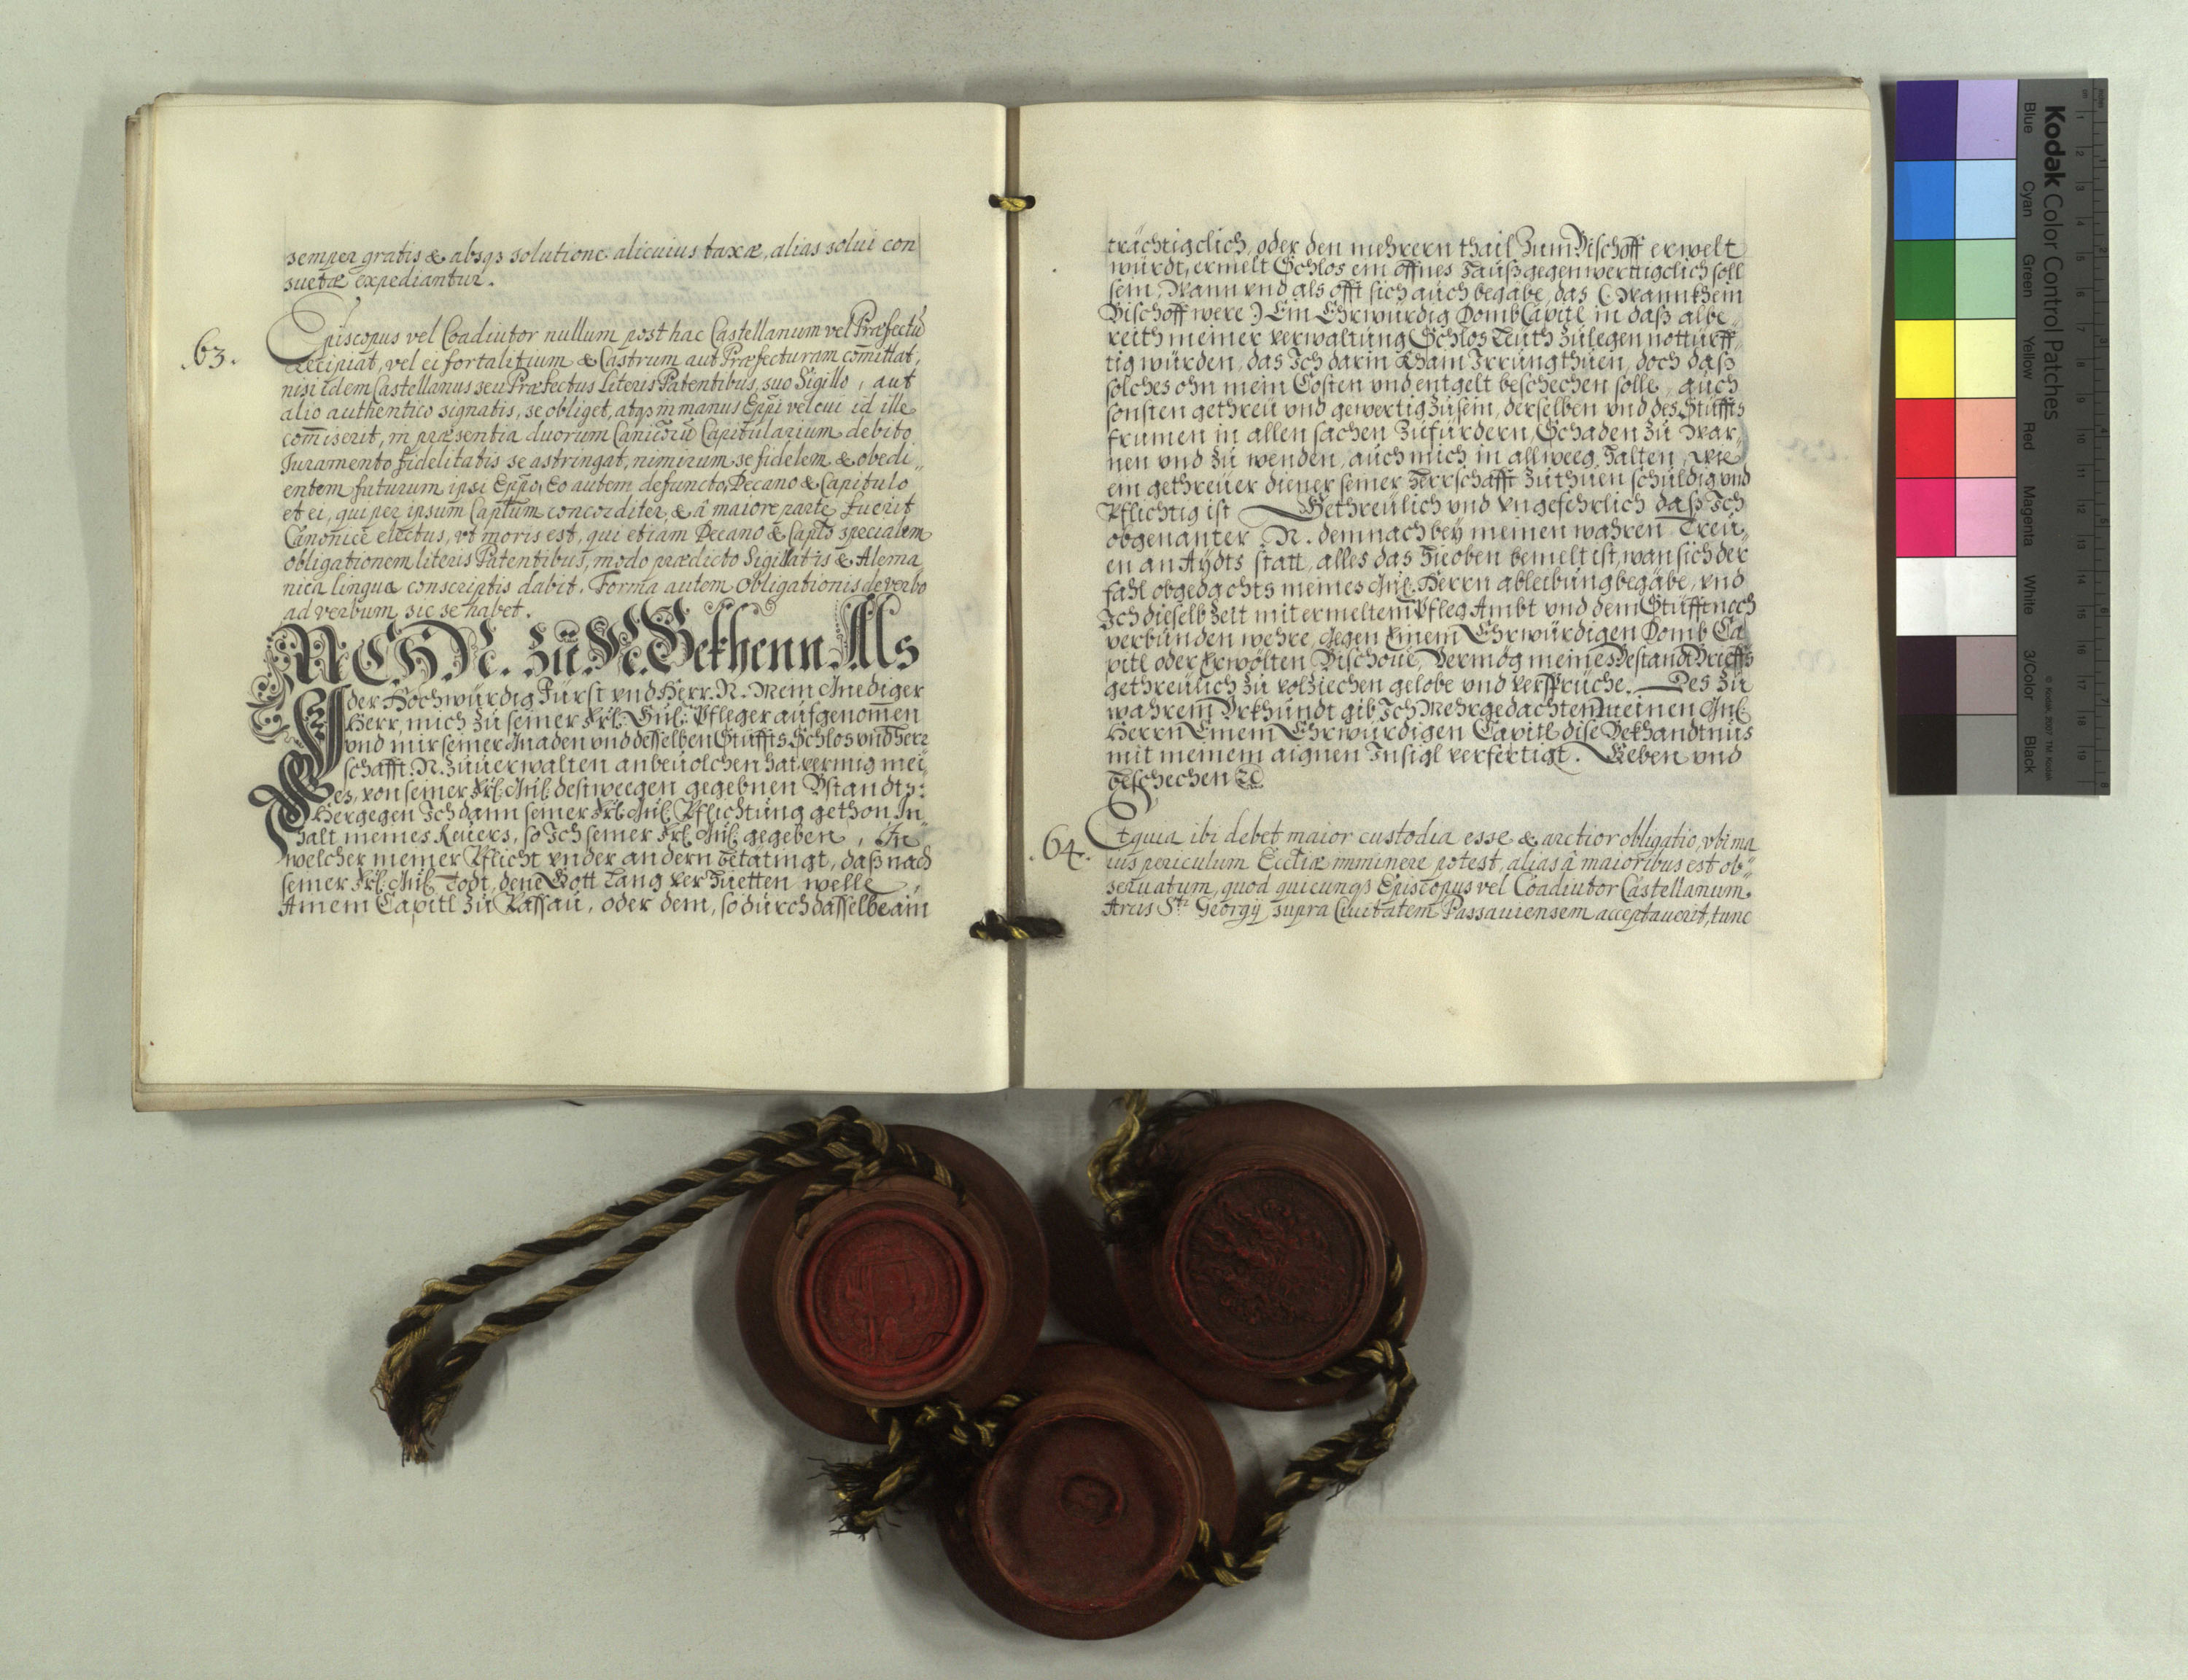 semper gratis & absqs solutione alicuius taxæ, alias solui con
suetæ expediantur.
.63.
Episcopus vel Coadiutor nullum post hac Castellanum vel Præfectū
recipiat, vel ei fortalitium & Castrum aut Præfecturam com̄ittat,
nisi idem Castellanus seu Præfectus literis Patentibus, suo Sigillo, aut
alio authentico signatis, se obliget, atqs in manus Epp̄i vel cui id ille
com̄iserit, in præsentia duorum Canicorū Capitularium debito
Juramento fidelitatis se astringat, nimirum se fidelem & obedi„
entem futurum ipsi Epp̄o, Eo autem defuncto, Decano & Capitulo
et ei, qui per ipsum Cap̄tum concorditer, & â maiore parte fuerit
Canonicè electus, vt moris est, qui etiam Decano & Cap̄lo specialem
obligationem literis Patentibus, modo prædicto Sigillatis & Alema„
nica lingua conscriptis dabit. Forma autem obligationis de verbo
ad verbum sic se habet.
ICH N. zü N. Bekhenn Als
der Hochwürdig Fürst vnd Herr. N. Mein Gnediger
Herr, mich zü seiner Frl: Gnl: Pfleger aufgenom̄en
vnd mir seiner Gnaden vnd desselben Stiffts Schlos vnd Herr
schafft. N. züuerwalten anbeuolchen hat vermig mei„
nes, von seiner Frl: Gnl: destweegen gegebnen Bstandts:
Hergegen Ich dann seiner Frl: Gnl: Pflichtüng gethon In„
halt meines Reuers, so Ich seiner Frl: Gnl: gegeben, In
welcher meiner Pflicht vnder andern betätingt, daß nach
seiner Frl: Gnl: Todt, dene Gott Lang verhüetten welle,
Ainem Capitl zü Passaü, oder dem, so dürch dasselbe ain
trächtigclich, oder den mehrern thail zum Bischoff erwelt
würdt, ermelt Schlos ein offnes Haüß gegenwerttigclich soll
sein, Wann vnd als offt sich aüch begäbe, das (: Wann khein
Bischoff were :) Ein Ehrwürdig DombCapitl in daß albe„
reith meiner verwaltüng Schlos Leüth zülegen nottürff„
tig würden, das Ich darin kham Irrüng thüen, doch daß
solches ohn mein Costen vnd entgelt beschechen solle, aüch
sonsten gethreü vnd gewertig züsein, derselben vnd des Stüffts
frumen in allen sachen züfürdern, Schaden zü War„
nen vnd zü wenden, aüch mich in allweeg halten, wie
ein gethreüer diener seiner Herrschafft züthüen schüldig vnd
Pflichtig ist Gethreülich vnd vngefehrlich daß Ich
obgenanter. N. demnach bey meinen wahren Treü„
en an Aÿdts statt, alles das Hieoben bemelt ist, wan sich der
fahl obgedachts meines Gnl: Herrn ableibüng begäbe, vnd
Ich dieselb Zeit mit ermeltem Pfleg Ambt vnd dem Stüfft noch
verbünden wehre, Gegen Einem Ehrwürdigen Domb Ca
pitl oder Erwölten Bischoüe, Vermög meines Bestandt Brieffs
gethreülich zü volziechen gelobe vnd versprüche. Des zü
wahrem Vrkhündt gib Ich Mehrgedachtem meinen Gnl:
Herrn Einem Ehrwürdigen Capitl dise Bekhandtnüs
mit meinem aignen Insigl verfertigt. Geben vnd
beschechen ꝛc
.64.
Et quia ibi debet maior custodia esse & arctior obligatio, vbi ma„
ius periculum Eccl̄iæ imminere potest, alias â maioribus est ob„
seruatum, quod quicunqs Episcopus vel Coadiutor Castellanum
Arcis Sti Georgij supra Ciuitatem Passauiensem acceptauerit, tunc
Kodak Color Control Patches
Blue Cyan Green Yellow Red Magenta White 3/Color Black
© Kodak, 2007 TM: Kodak